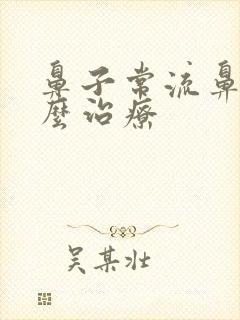 鼻子常流鼻
麼治療
吴某壮